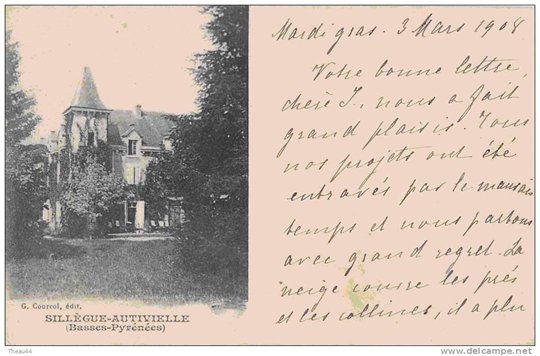 Mardi gras. 3 Mars 1908
Votre bonne lettre,
chère J., nous a fait
grand plaisir. Tous
nos projets ont été
entravés par le mauvais
temps et nous partons
avec grand regret. La
neige couvre les prés
et les collines, il a plu
G. Courcol, édit.
SILLÈGUE-AUTIVIELLE
(Basses-Pyrénées)
Theau44
www.delcampe.net